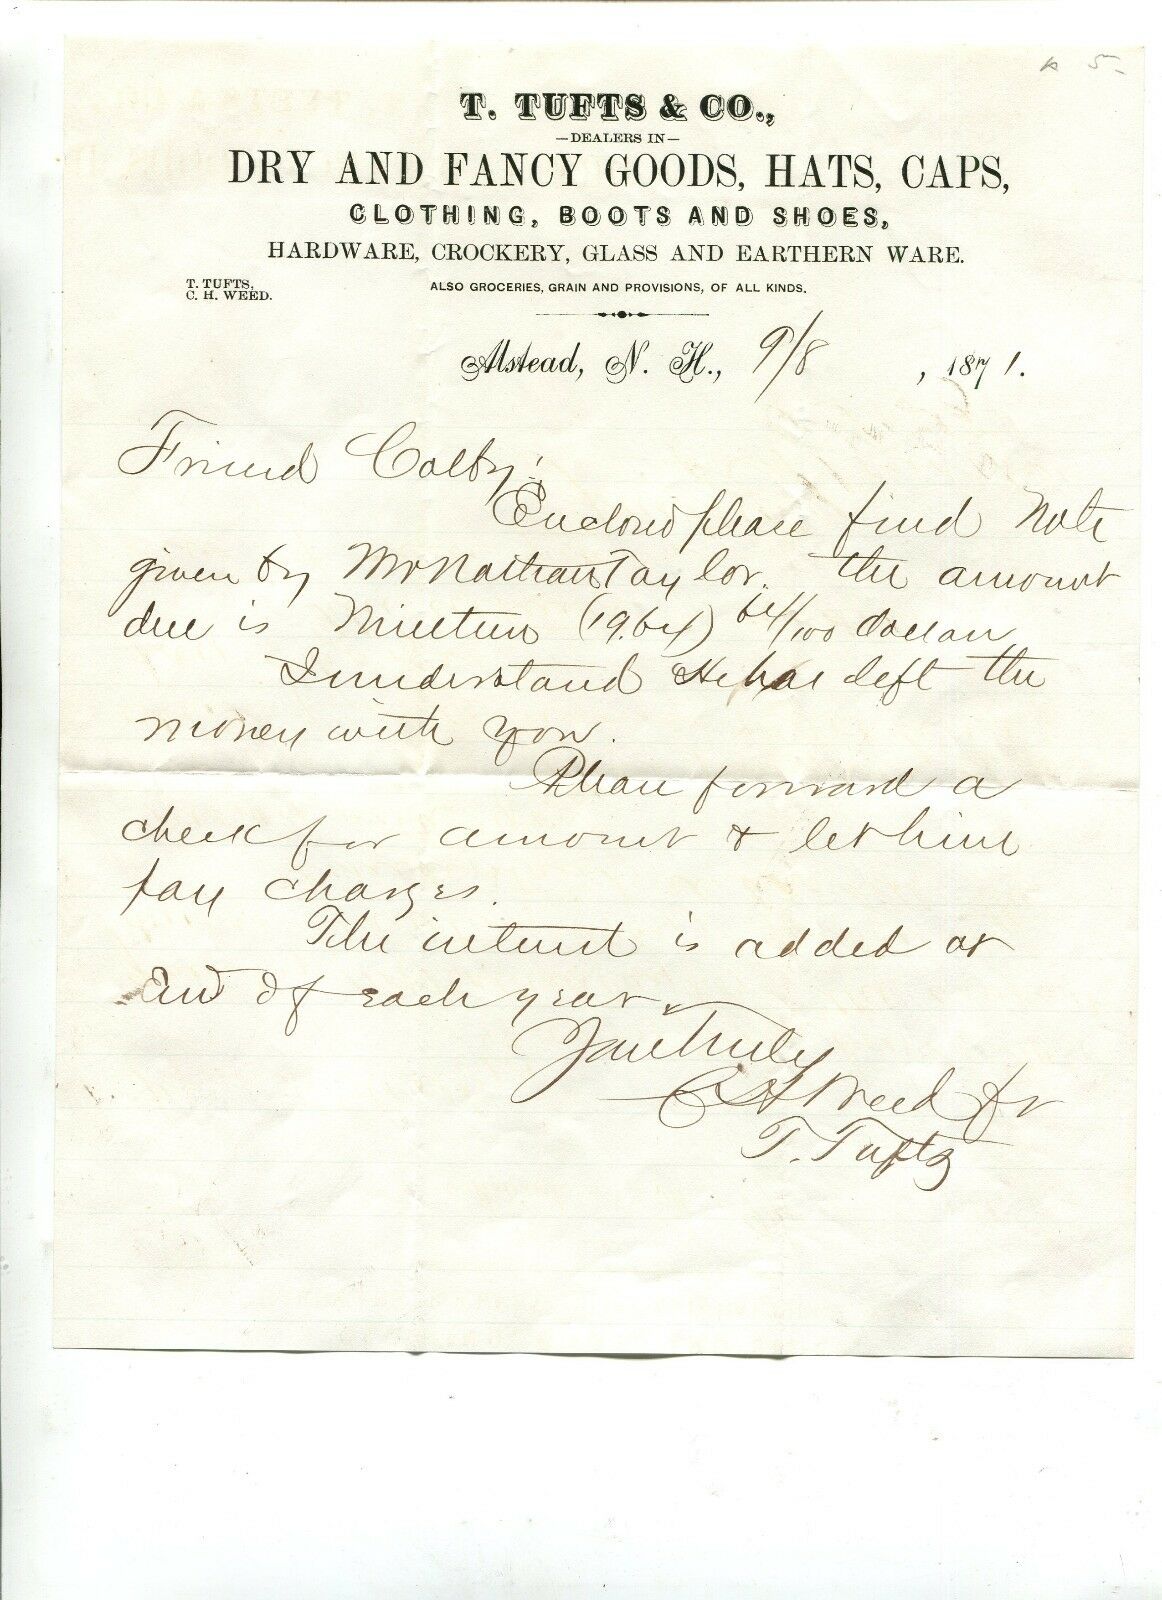 T. TUFTS & CO.,
—DEALERS IN—
DRY AND FANCY GOODS, HATS, CAPS,
CLOTHING, BOOTS AND SHOES,
HARDWARE, CROCKERY, GLASS AND EARTHERN WARE.
T. TUFTS,
C. H. WEED.
ALSO GROCERIES, GRAIN AND PROVISIONS, OF ALL KINDS.
Alstead, N. H., 9/8, 1871.
Friend Colby:
Enclosed please find Note
given by Mr Nathan Taylor. The amount
due is Nineteen (19.64) 64/100 dollars
I understand He has left the
money with you.
Please forward a
check for amount & let him
pay charges.
The interest is added at
End of each year.
Yours Truly
C H Weed for
T. Tufts